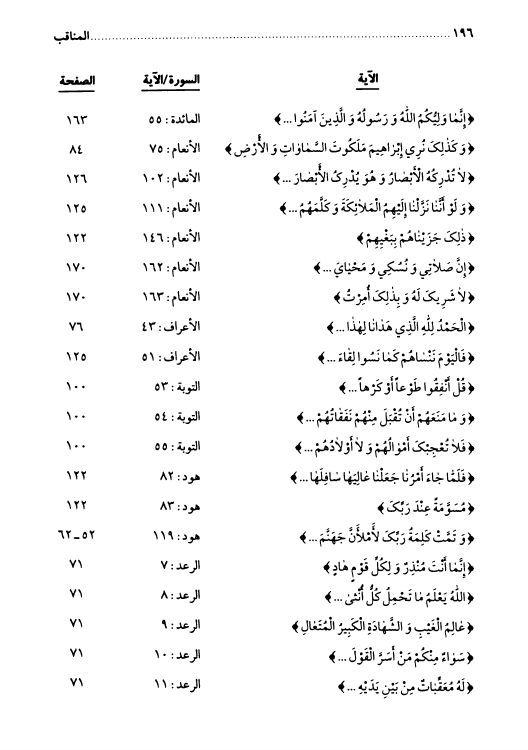 ١٩٦ ........................................ المناقب
الآية السورة/الآية الصفحة
﴿إِنَّمَا وَلِيُّكُمُ اللّٰهُ وَ رَسُولُهُ وَ الَّذِينَ آمَنُوا ...﴾ المائدة: ٥٥ ١٦٣
﴿وَ كَذٰلِكَ نُرِي إِبْرَاهِيمَ مَلَكُوتَ السَّمَاوَاتِ وَ الْأَرْضِ﴾ الأنعام: ٧٥ ٨٤
﴿لاٰ تُدْرِكُهُ الْأَبْصَارُ وَ هُوَ يُدْرِكُ الْأَبْصَارَ ...﴾ الأنعام: ١٠٢ ١٢٦
﴿وَ لَوْ أَنَّنَا نَزَّلْنَا إِلَيْهِمُ الْمَلاٰئِكَةَ وَ كَلَّمَهُمُ ...﴾ الأنعام: ١١١ ١٢٥
﴿ذٰلِكَ جَزَيْنَاهُمْ بِبَغْيِهِمْ﴾ الأنعام: ١٤٦ ١٢٢
﴿إِنَّ صَلاٰتِي وَ نُسُكِي وَ مَحْيَايَ ...﴾ الأنعام: ١٦٢ ١٧٠
﴿لاٰ شَرِيكَ لَهُ وَ بِذٰلِكَ أُمِرْتُ﴾ الأنعام: ١٦٣ ١٧٠
﴿الْحَمْدُ لِلّٰهِ الَّذِي هَدَانَا لِهٰذَا ...﴾ الأعراف: ٤٣ ٧٦
﴿فَالْيَوْمَ نَنْسَاهُمْ كَمَا نَسُوا لِقَاءَ ...﴾ الأعراف: ٥١ ١٢٥
﴿قُلْ أَنْفِقُوا طَوْعاً أَوْ كَرْهاً ...﴾ التوبة: ٥٣ ١٠٠
﴿وَ مَا مَنَعَهُمْ أَنْ تُقْبَلَ مِنْهُمْ نَفَقَاتُهُمْ ...﴾ التوبة: ٥٤ ١٠٠
﴿فَلاٰ تُعْجِبْكَ أَمْوَالُهُمْ وَ لاٰ أَوْلاٰدُهُمْ ...﴾ التوبة: ٥٥ ١٠٠
﴿فَلَمَّا جَاءَ أَمْرُنَا جَعَلْنَا عَالِيَهَا سَافِلَهَا ...﴾ هود: ٨٢ ١٢٢
﴿مُسَوَّمَةً عِنْدَ رَبِّكَ﴾ هود: ٨٣ ١٢٢
﴿وَ تَمَّتْ كَلِمَةُ رَبِّكَ لَأَمْلَأَنَّ جَهَنَّمَ ...﴾ هود: ١١٩ ٥٢ـ٦٢
﴿إِنَّمَا أَنْتَ مُنْذِرٌ وَ لِكُلِّ قَوْمٍ هَادٍ﴾ الرعد: ٧ ٧١
﴿اللّٰهُ يَعْلَمُ مَا تَحْمِلُ كُلُّ أُنْثىٰ ...﴾ الرعد: ٨ ٧١
﴿عَالِمُ الْغَيْبِ وَ الشَّهَادَةِ الْكَبِيرُ الْمُتَعَالِ﴾ الرعد: ٩ ٧١
﴿سَوَاءٌ مِنْكُمْ مَنْ أَسَرَّ الْقَوْلَ ...﴾ الرعد: ١٠ ٧١
﴿لَهُ مُعَقِّبَاتٌ مِنْ بَيْنِ يَدَيْهِ ...﴾ الرعد: ١١ ٧١